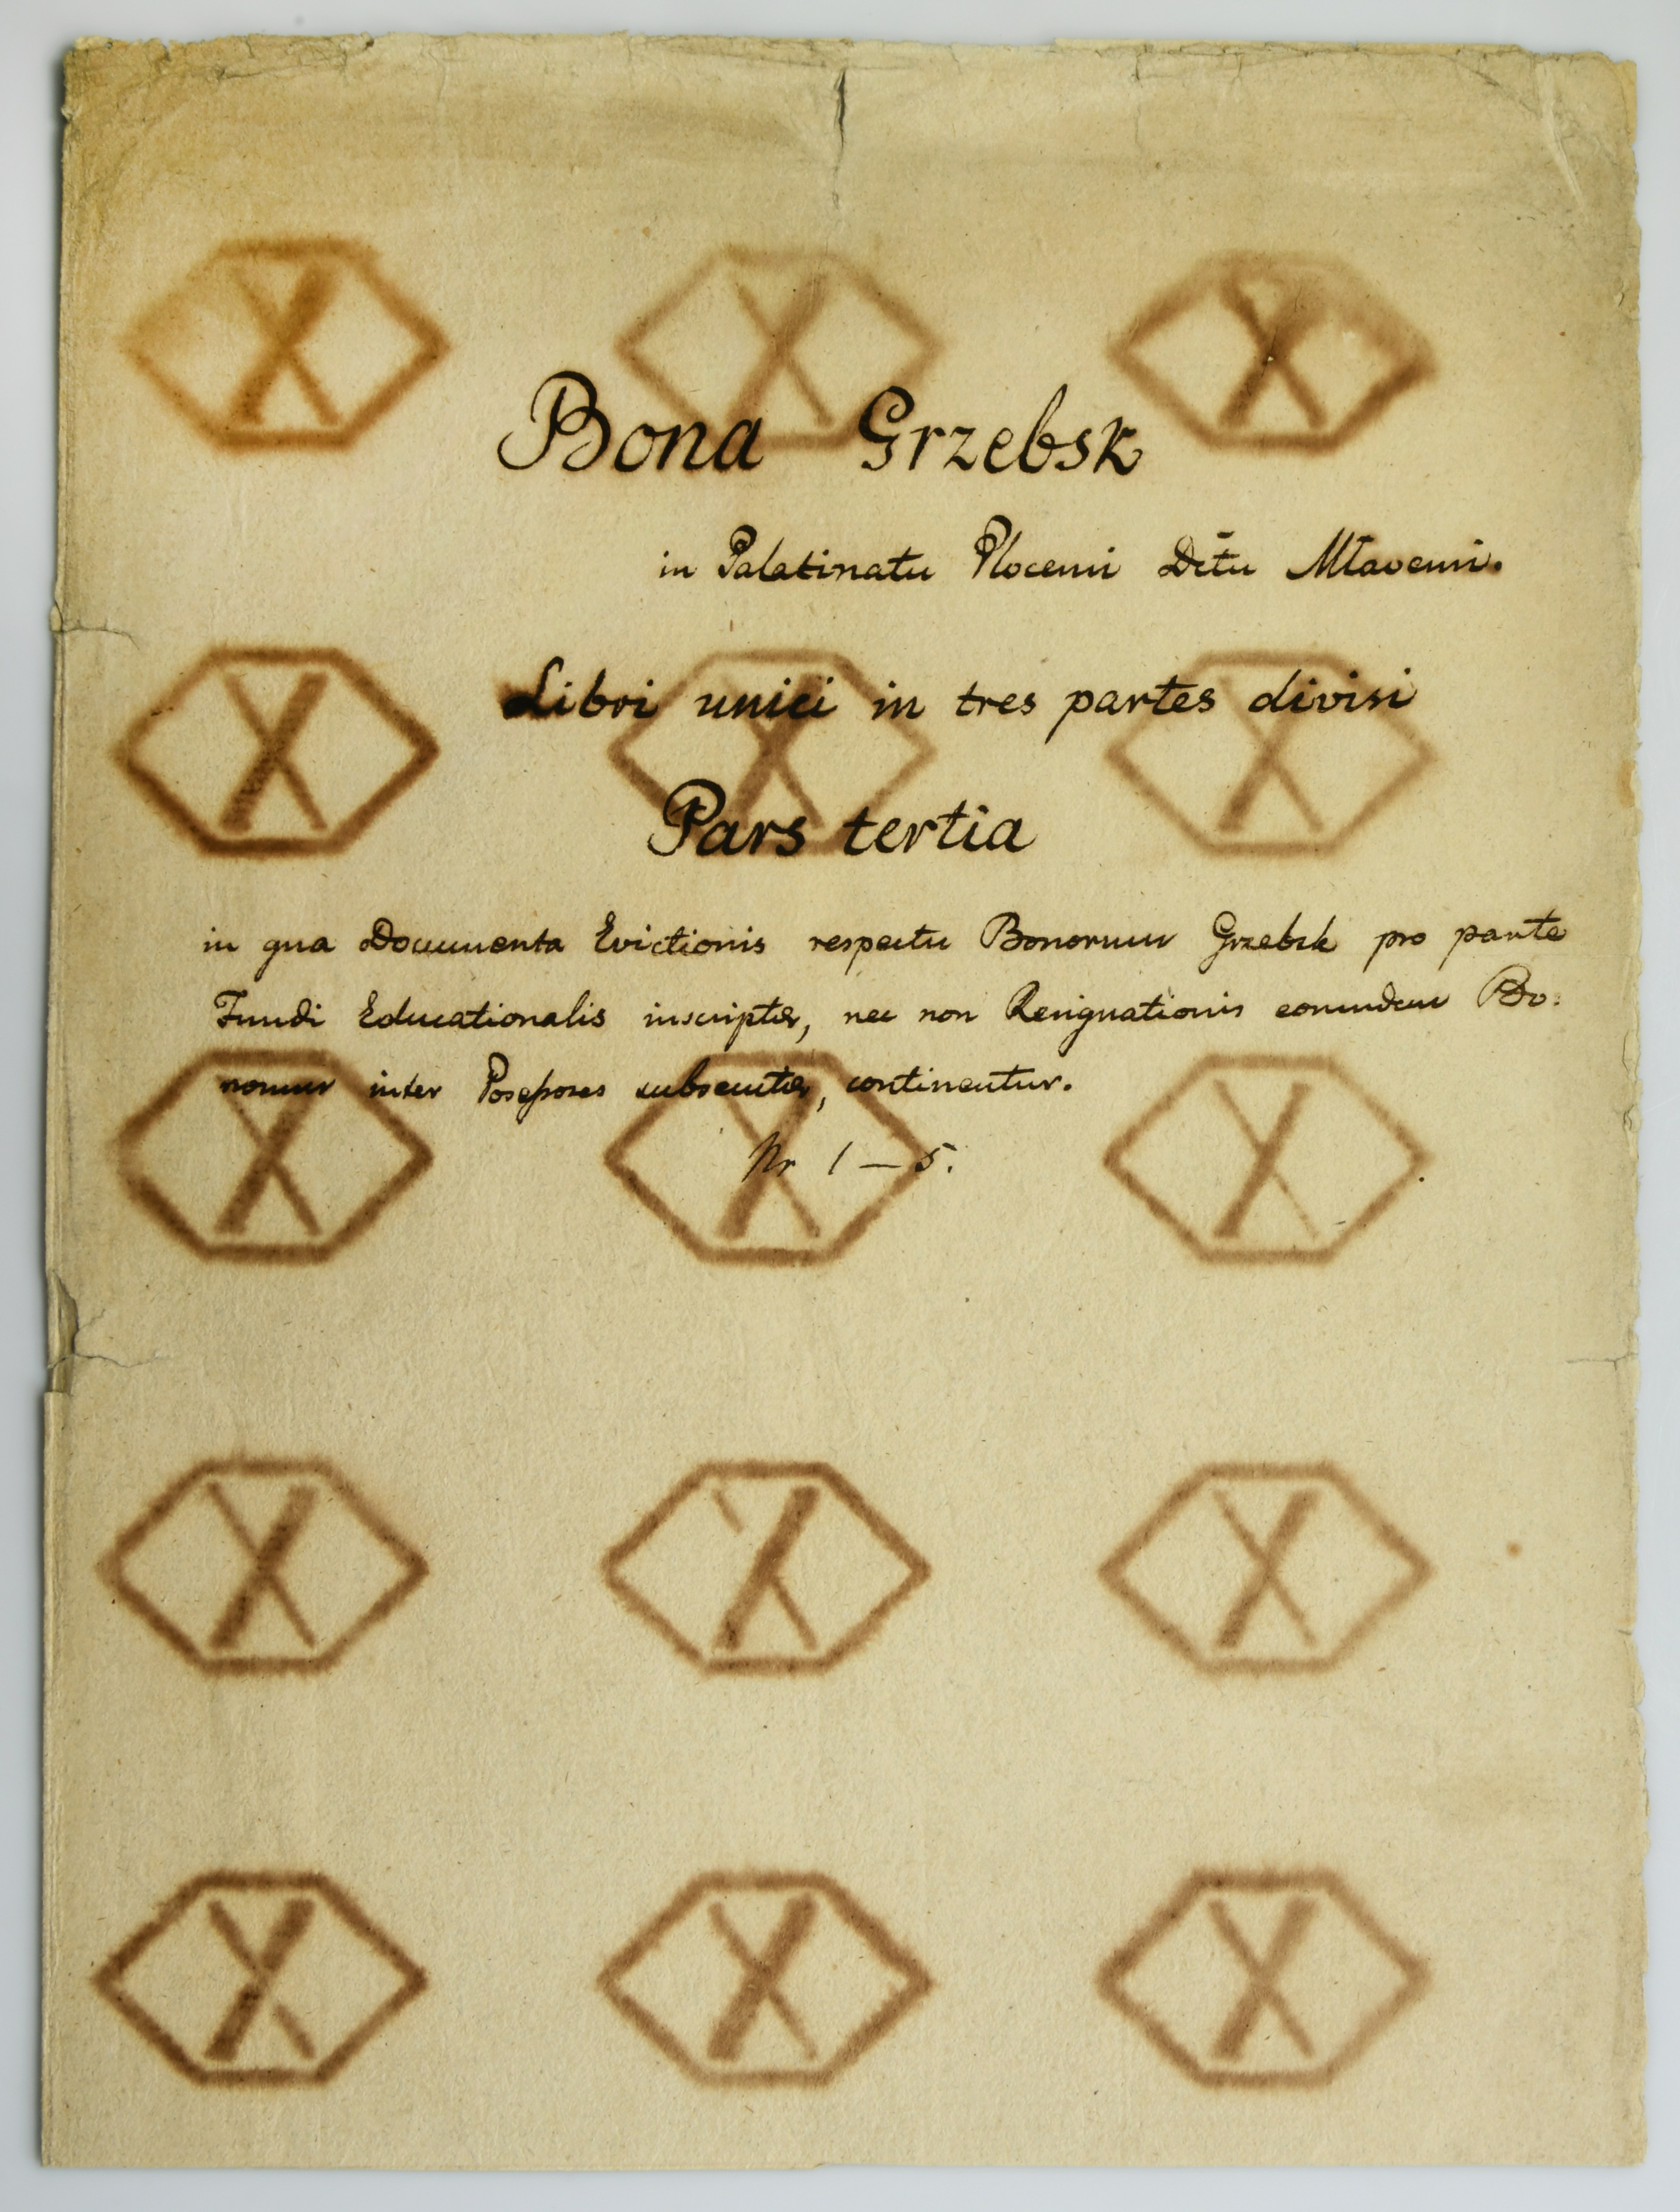 Bona Grzebsk
in Palatinatu Plocensi Dĩtu Mlavensi.
Libri unici in tres partes divisi
Pars tertia
in qua Documenta Evictionis respectu Bonorum Grzebsk pro parte
Fundi Educationalis inscriptæ, nec non Resignationis eorundem Bo:
norum inter Possessores subsecutæ, continentur.
Nr 1 — 5.
X X X
X X X
X X X
X X X
X X X